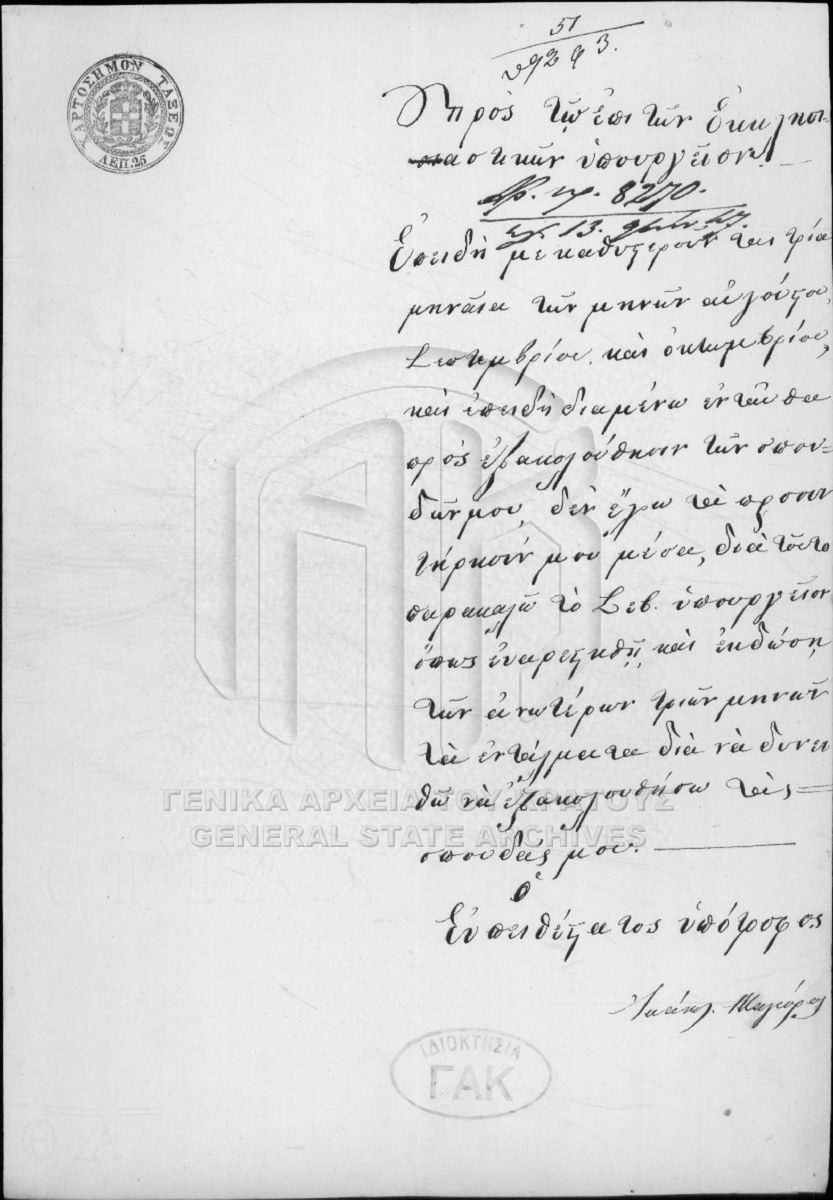 51
ΧΑΡΤΟΣΗΜΟΝ ΤΑΞΕΩΣ
ΛΕΠ. 25
Πρὸς τῷ ἐπὶ τῶν Ἐκκλησι-
αστικῶν ὑπουργεῖον
Ἀρ. πρ. 8270.
13.
Ἐπειδὴ μὲ καθυστεροῦν ται τρία
μηναῖα τῶν μηνῶν αὐγούστου,
Σεπτεμβρίου, καὶ ὀκτωμβρίου,
καὶ ἐπειδὴ διαμένω ἐνταῦθα
πρὸς ἐξακολούθησιν τῶν σπου-
δῶν μου, δὲν ἔχω τὰ πρὸς συν
τήρησίν μου μέσα, διὰ τοῦτο
παρακαλῶ τὸ Σεβ. ὑπουργεῖον
ὅπως ἐναρεστηθῇ καὶ ἐκδώσῃ
τῶν ἀνωτέρων τριῶν μηνῶν
τὰ ἐντάλματα διὰ νὰ δυνη
θῶ νὰ ἐξακολουθήσω τὰς
σπουδάς μου.
ὁ
Εὐπειθέστατος ὑπότροφος
ΓΕΝΙΚΑ ΑΡΧΕΙΑ ΤΟΥ ΚΡΑΤΟΥΣ
GENERAL STATE ARCHIVES
ΙΔΙΟΚΤΗΣΙΑ
ΓΑΚ